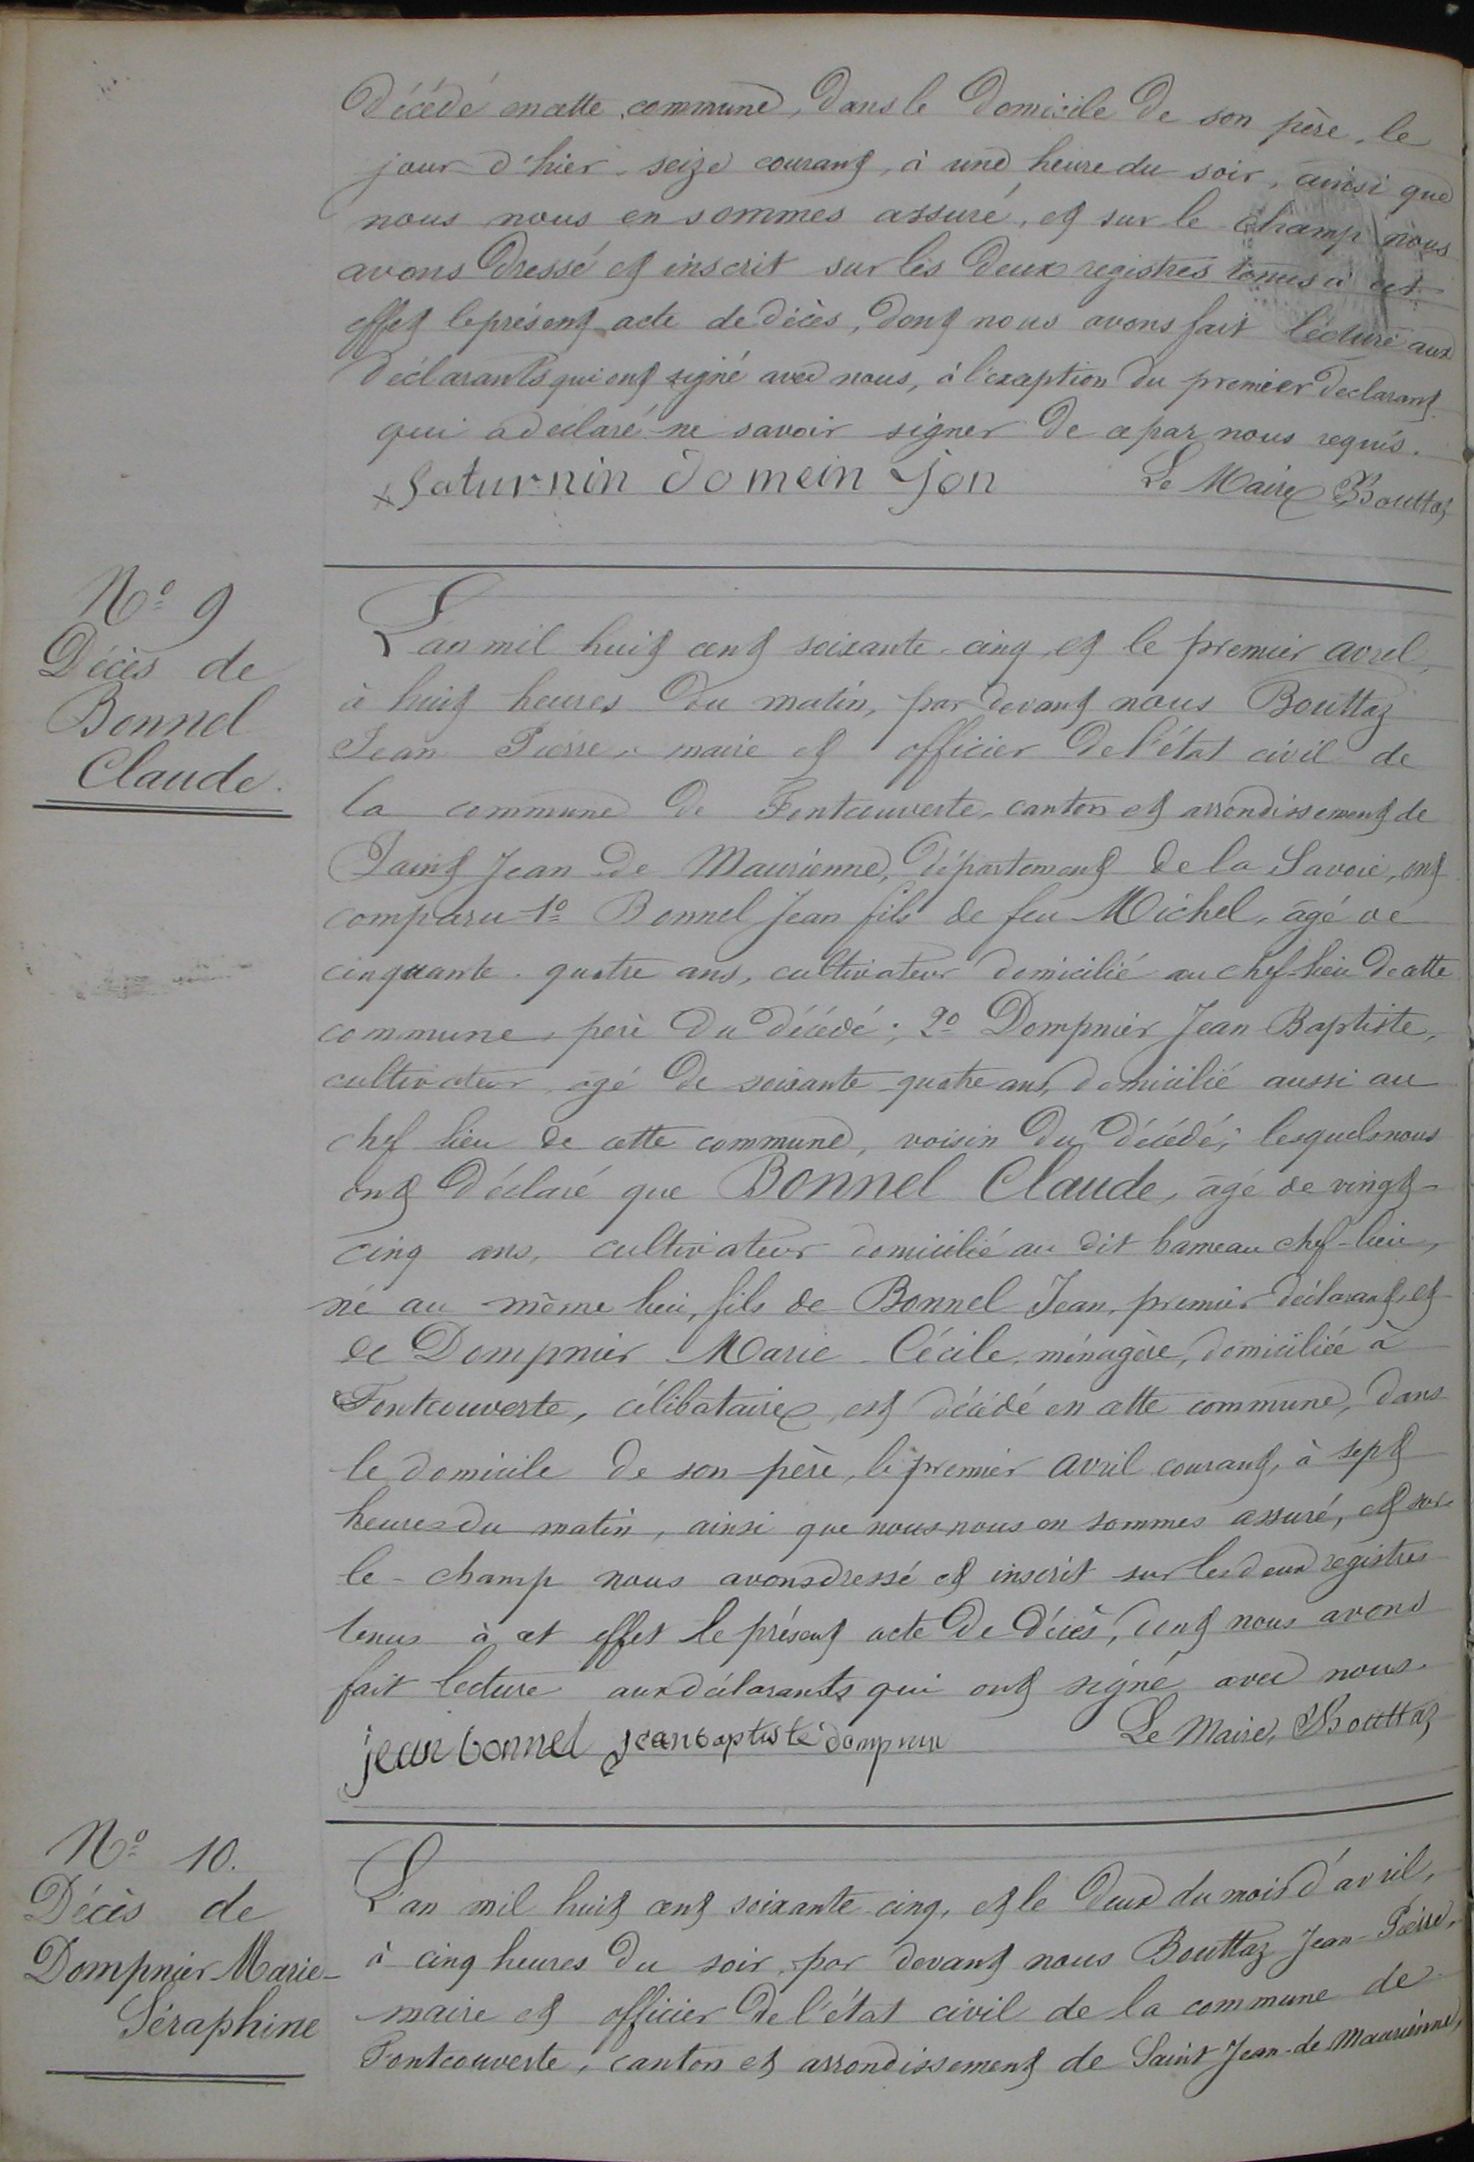 décédé en cette commune, dans le domicile de son père, le
jour d'hier, seize courant, à une heure du soir, ainsi que
nous nous en sommes assuré, et sur le champ nous
avons dressé et inscrit sur les deux registres tenus à cet
effet le présent acte de décès, dont nous avons fait lecture aux
déclarants qui ont signé avec nous, à l'exception du premier declarant
qui a déclaré ne savoir signer de ce par nous requis.
Saturnin domein jon Le Maire Bouttaz
N° 9
Décès de
Bonnel
Claude.
L'an mil huit cent soixante-cinq et le premier avril,
à huit heures du matin, par devant nous Bouttaz
Jean Pierre, maire et officier de l'état civil de
la commune de Fontcouverte, canton et arrondissement de
Saint Jean de Maurienne, département de la Savoie, ont
comparu 1° Bonnel Jean fils de feu Michel, âgé de
cinquante-quatre ans, cultivateur domicilié au chef-lieu de cette
commune, père du décédé; 2° Dompnier Jean Baptiste,
cultivateur, âgé de soixante-quatre ans, domicilié aussi au
chef lieu de cette commune, voisin du décédé; lesquels nous
ont déclaré que Bonnel Claude, âgé de vingt-
cinq ans, cultivateur domicilié au dit hameau chef-lieu,
né au même lieu, fils de Bonnel Jean, premier déclarant, et
de Dompnier Marie Cécile, ménagère, domiciliée à
Fontcouverte, célibataire, est décédé en cette commune, dans
le domicile de son père, le premier avril courant, à sept
heures du matin, ainsi que nous nous en sommes assuré, et sur
le-champ nous avons dressé et inscrit sur les deux registres
tenus à cet effet le présent acte de décès, dont nous avons
fait lecture aux déclarants qui ont signé avec nous.
jean bonnel jean baptiste dompnier Le Maire, Bouttaz
N° 10.
Décès de
Dompnier Marie-
Séraphine
L'an mil huit cent soixante-cinq, et le deux du mois d'avril,
à cinq heures du soir, par devant nous Bouttaz Jean-Pierre,
maire et officier de l'état civil de la commune de
Fontcouverte, canton et arrondissement de Saint Jean-de Maurienne,